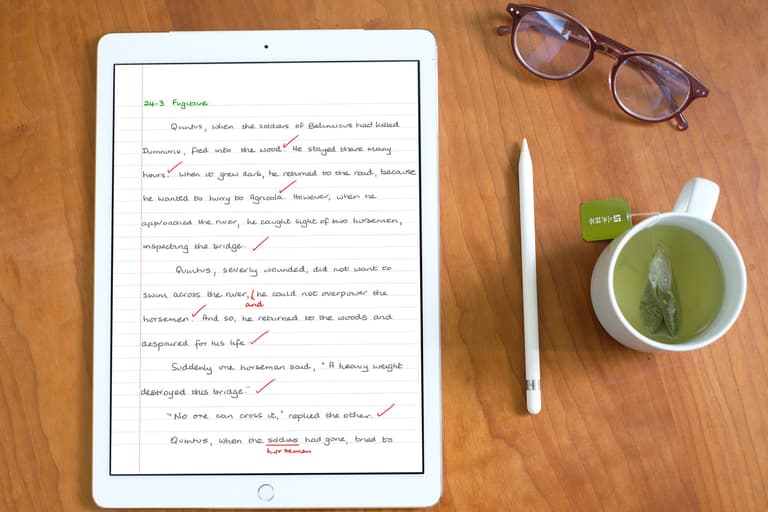 24-3 Fugitive
Quintus, when the soldiers of Belimicus had killed
Dumnorix, fled into the wood. He stayed there many
hours. When it grew dark, he returned to the road, because
he wanted to hurry to Agricola. However, when he
approached the river, he caught sight of two horsemen,
inspecting the bridge.
Quintus, severely wounded, did not want to
swim across the river, he could not overpower the
and
horsemen. And so, he returned to the woods and
despaired for his life.
Suddenly one horseman said, "A heavy weight
destroyed this bridge."
"No one can cross it," replied the other.
Quintus, when the soldiers had gone, tried to
horsemen